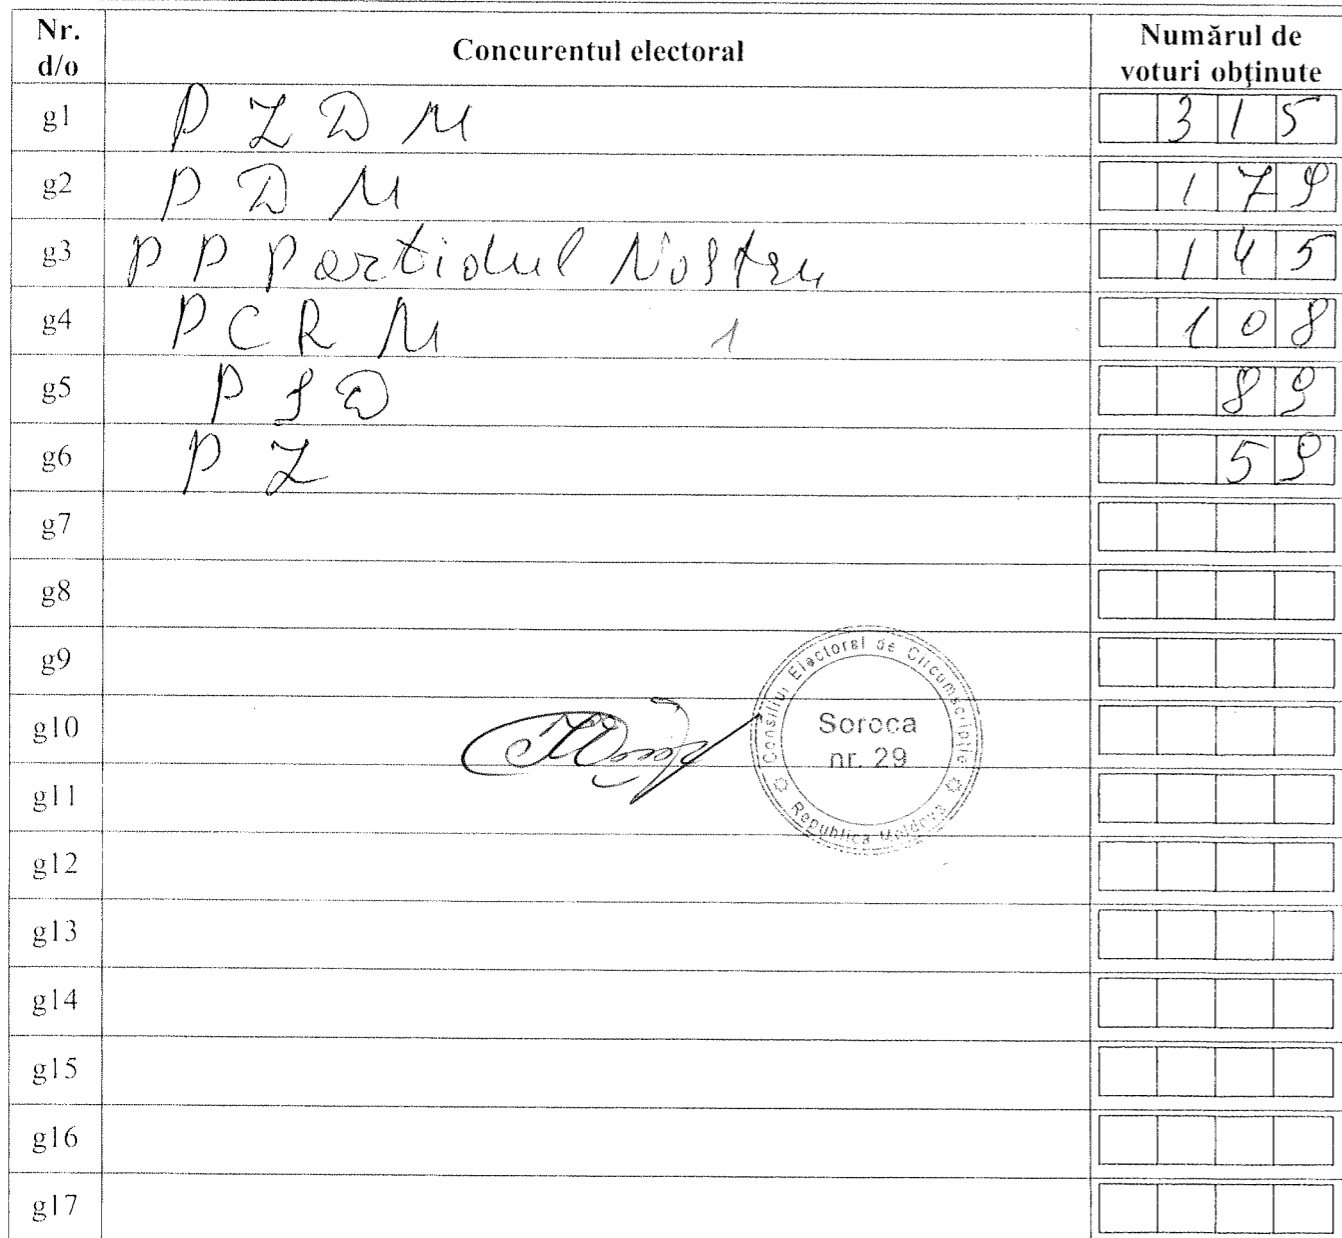 Nr. d/o Concurentul electoral Numărul de voturi obţinute
g1 PLDM 315
g2 PDM 179
g3 PP Partidul Nostru 145
g4 PCRM 1 108
g5 PSD 89
g6 PL 59
g7
g8
g9
g10
g11
g12
g13
g14
g15
g16
g17
Consiliul Electoral de Circumscripție
Soroca
nr. 29
Republica Moldova